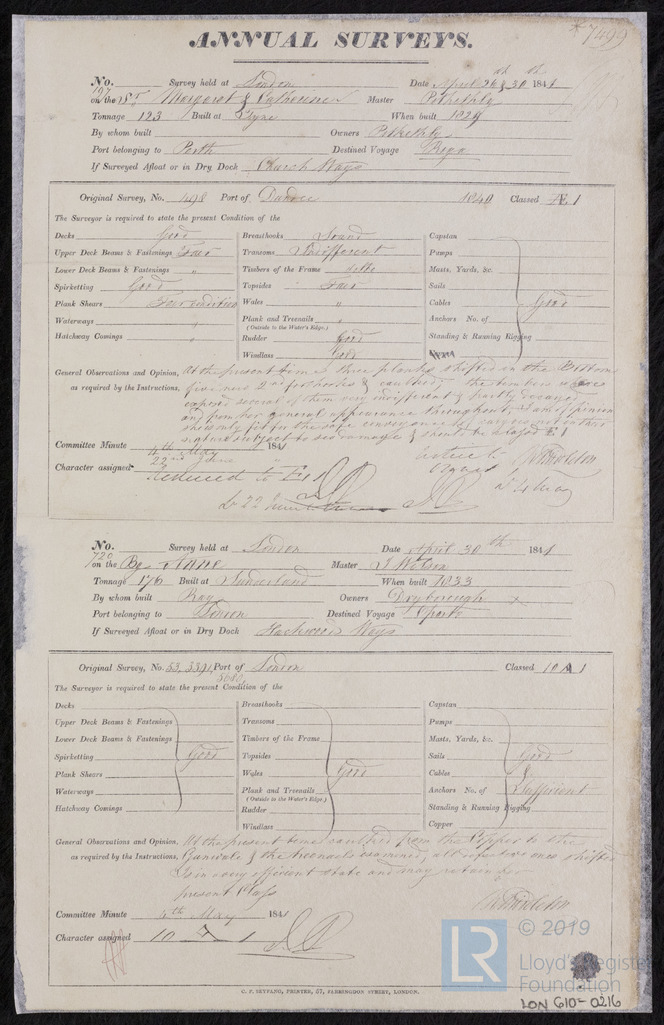 *7499
ANNUAL SURVEYS.
No. 197 Survey held at London Date April 26th & 30th 1841
on the Sr Margaret & Catherine Master Pethethly
Tonnage 123 Built at Tyne When built 1829
By whom built Owners Pethethly
Port belonging to Perth Destined Voyage Riga
If Surveyed Afloat or in Dry Dock Church Ways
Original Survey, No. 498 Port of Dundee 1840 Classed Æ 1
The Surveyor is required to state the present Condition of the
Decks Good Breasthooks Sound Capstan
Upper Deck Beams & Fastenings Fair Transoms Indifferent Pumps
Lower Deck Beams & Fastenings " Timbers of the Frame ditto Masts, Yards, &c.
Spirketting Good Topsides Fair Sails
Plank Shears Fair condition Wales " Cables Good
Waterways " Plank and Treenails " Anchors No. of
(Outside to the Water's Edge.)
Hatchway Comings " Rudder Good Standing & Running Rigging
Windlass Good
General Observations and Opinion, At the present time is three planks shifted in the Bottom
as required by the Instructions, five new & caulked, the timbers were
exposed several of them very indifferent & partly decayed
and from her general appearance throughout I am of opinion
she is only fit for the safe conveyance of cargoes not in their
nature subject to sea damage & should be classed Æ 1
Committee Minute 4th May 1841
22nd June "
Character assigned reduced to E 1
No. 720 Survey held at London Date April 30th 1841
on the Bg Anne Master J Watson
Tonnage 176 Built at Sunderland When built 1833
By whom built Kay Owners Dryborough
Port belonging to London Destined Voyage Oporto
If Surveyed Afloat or in Dry Dock Ways
Original Survey, No. 53, 3391, 5680 Port of London Classed 10 A 1
The Surveyor is required to state the present Condition of the
Decks Breasthooks Capstan
Upper Deck Beams & Fastenings Transoms Pumps
Lower Deck Beams & Fastenings Timbers of the Frame Masts, Yards, &c.
Spirketting Good Topsides Sails Good
Plank Shears Wales Good Cables &
Waterways Plank and Treenails Anchors No. of Sufficient
(Outside to the Water's Edge.)
Hatchway Comings Rudder Standing & Running Rigging
Windlass Copper
General Observations and Opinion, At the present time caulked from the Copper to the
as required by the Instructions, Gunwale & the treenails examined, all defective ones shifted
Is in a very efficient state and may retain her
present Class
Committee Minute 4th May 1841
Character assigned 10 A 1
C. F. SEYFANG, PRINTER, 57, FARRINGDON STREET, LONDON.
LR © 2019
Lloyd's Register
Foundation
LON 610-0216